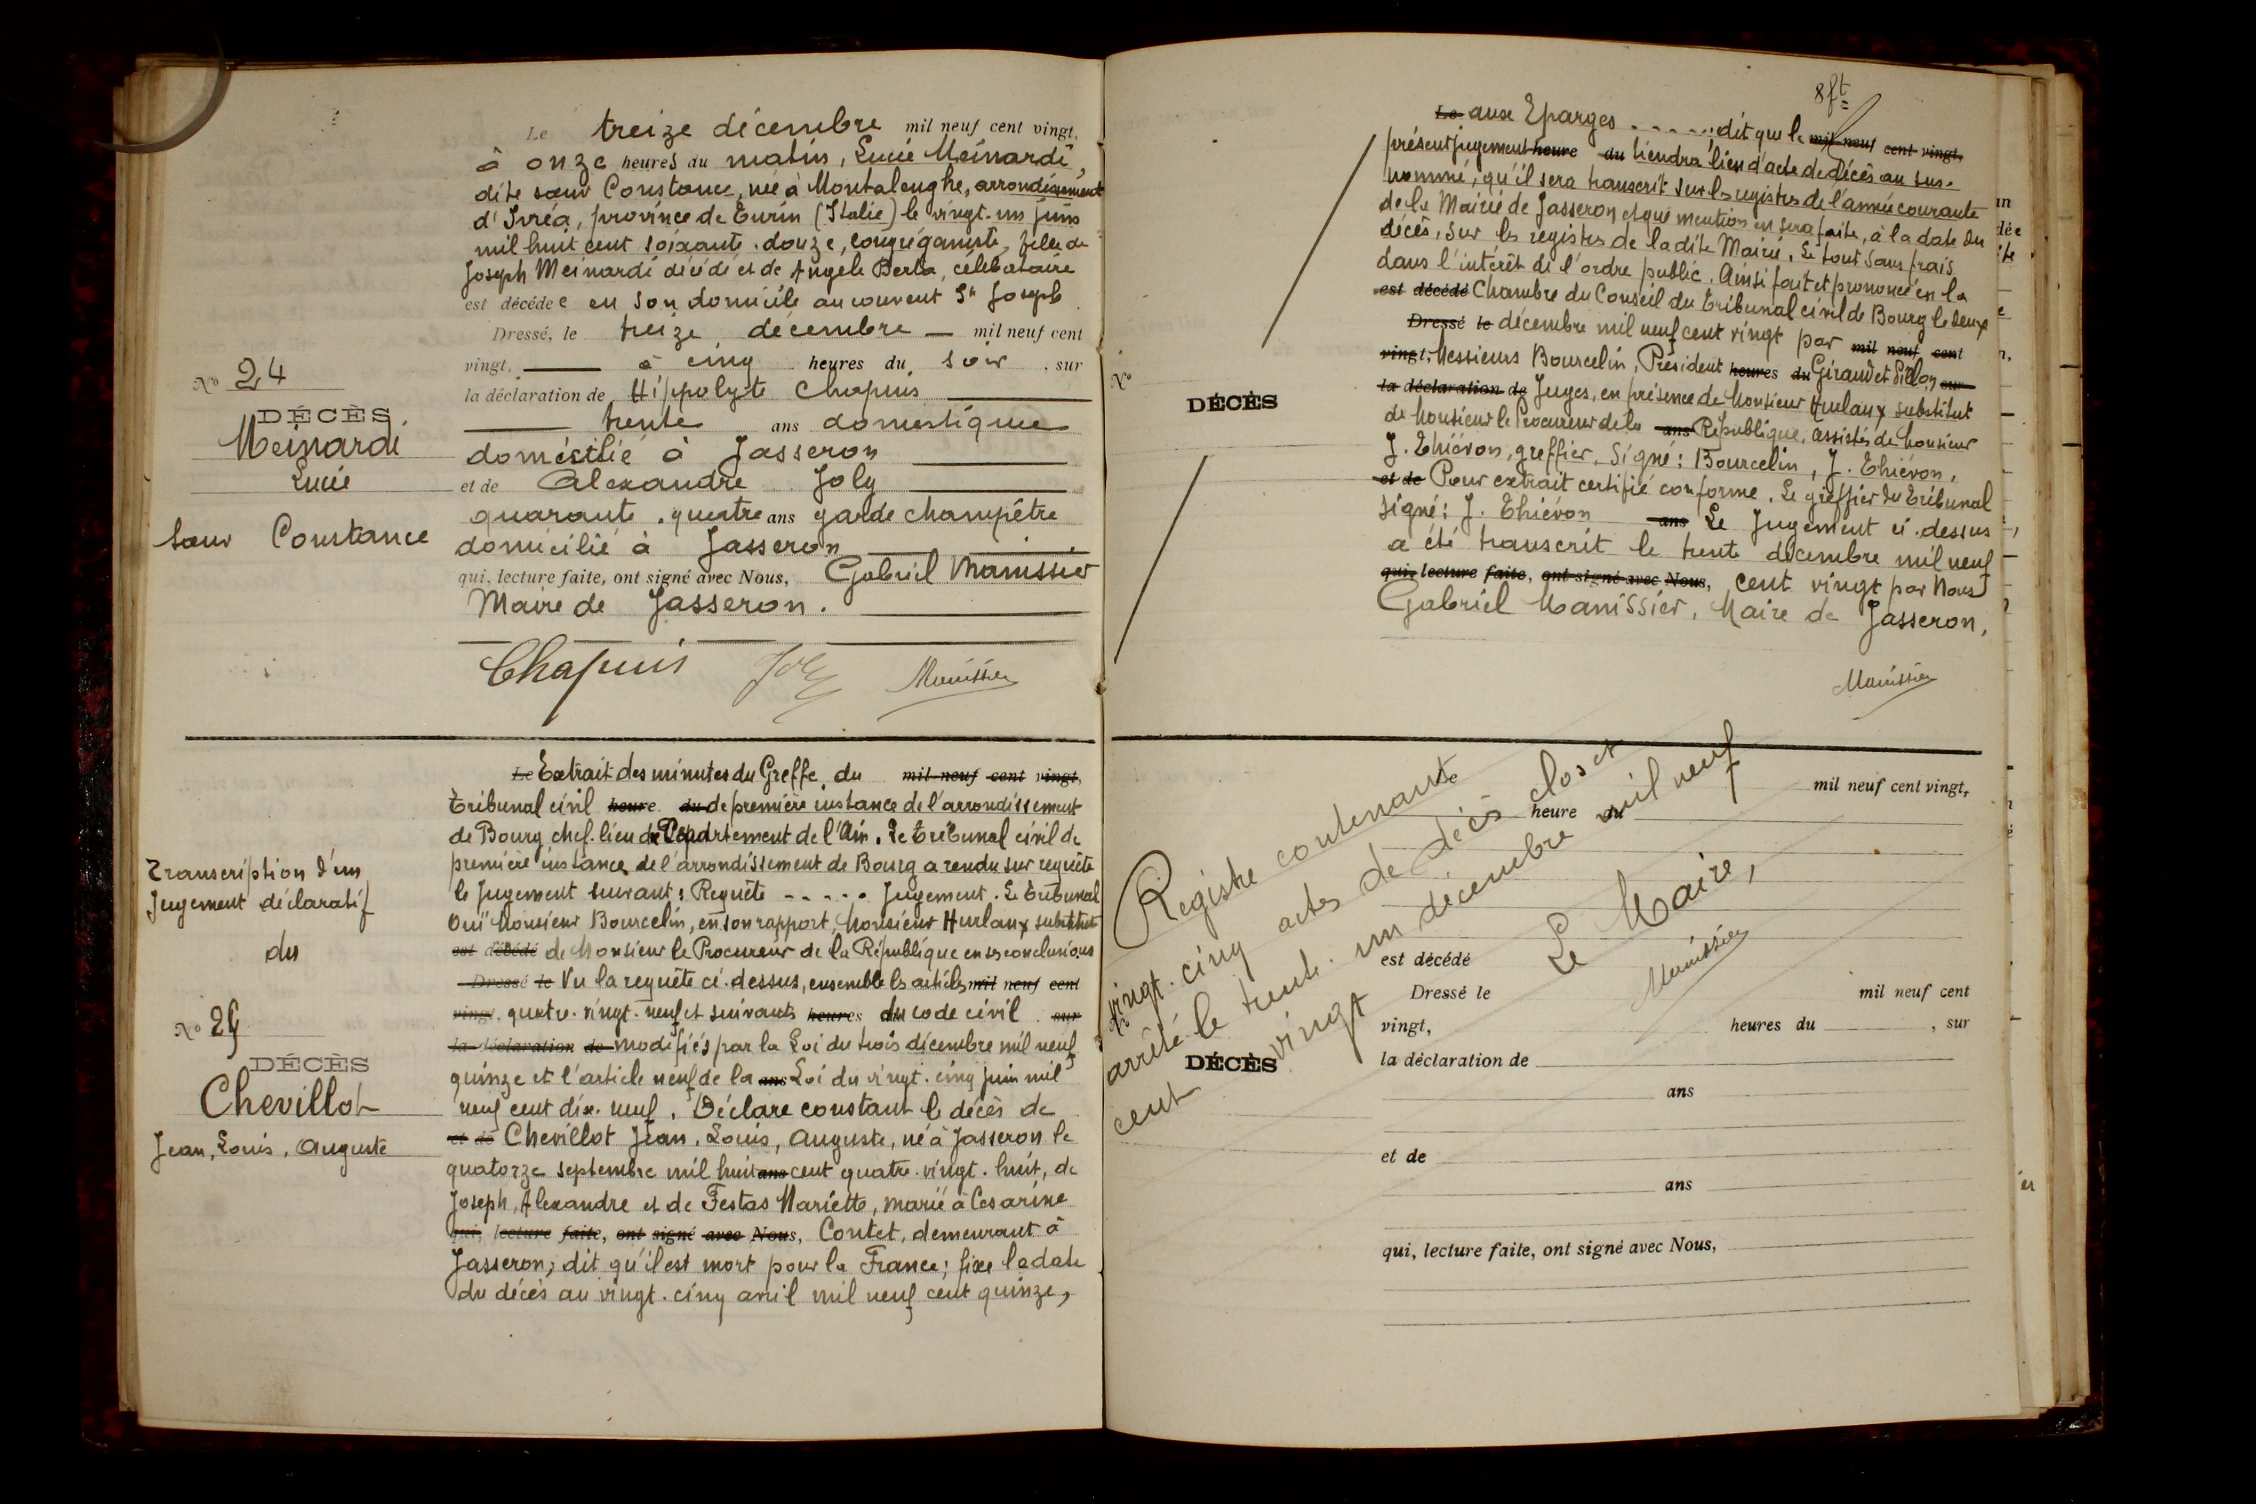 Le treize décembre mil neuf cent vingt,
à onze heures du matin, Lucie Meinardi,
dite sœur Constance, née à Montalenghe, arrondissement
d'Ivréa, province de Turin (Italie) le vingt-un juin
mil huit cent soixante-douze, congréganiste, fille de
Joseph Meinardi décédé et de Angele Berta, célibataire
est décédée en son domicile au couvent St Joseph
Dressé, le treize décembre mil neuf cent
vingt, à cinq heures du soir, sur
la déclaration de Hippolyte Chapuis
trente ans domestique
domicilié à Jasseron
et de Alexandre Joly
quarante-quatre ans garde champêtre
domicilié à Jasseron
qui, lecture faite, ont signé avec Nous, Gabriel Manissier
Maire de Jasseron.
Chapuis Joly Manissier
No 24
DÉCÈS
Meinardi
Lucie
Sœur Constance
Le Extrait des minutes du Greffe du mil neuf cent vingt,
Tribunal civil heure du de première instance de l'arrondissement
de Bourg chef-lieu du Département de l'Ain. Le Tribunal civil de
première instance de l'arrondissement de Bourg a rendu sur requête
le Jugement suivant: Requête - - - - - Jugement. Le Tribunal
Ouï Monsieur Bourcelin, en son rapport, Monsieur Hurlaux substitut
est décédé de Monsieur le Procureur de la République en ses conclusions
Dressé le Vu la requête ci-dessus, ensemble les articles mil neuf cent
vingt, quatre-vingt-neuf et suivants heures du code civil sur
la déclaration de modifiés par la Loi du trois décembre mil neuf
quinze et l'article neuf de la ans Loi du vingt-cinq juin mil
neuf cent dix-neuf. Déclare constant le décès de
et de Chevillot Jean, Louis, Auguste, né à Jasseron le
quatorze septembre mil huit ans cent quatre-vingt-huit, de
Joseph, Alexandre et de Festas Mariette, marié à Cesarine
qui, lecture faite, ont signé avec Nous, Contet, demeurant à
Jasseron; dit qu'il est mort pour la France; fixe la date
du décès au vingt-cinq avril mil neuf cent quinze,
Transcription d'un
Jugement déclaratif
du
No 25
DÉCÈS
Chevillot
Jean, Louis, Auguste
8ft
Le aux Eparges - - - - -; dit que le mil neuf cent vingt,
présent jugement heure du tiendra lieu d'acte de décès au sus-
nommé, qu'il sera transcrit sur les registres de l'année courante
de la Mairie de Jasseron et que mention en sera faite, à la date du
décès, sur les registres de la dite Mairie. Le tout sans frais
dans l'intérêt de l'ordre public. Ainsi fait et prononcé en la
est décédé Chambre du Conseil du Tribunal civil de Bourg le deux
Dressé le décembre mil neuf cent vingt par mil neuf cent
vingt, Messieurs Bourcelin, Président heures du Giraud et Pillon sur
la déclaration de Juges, en présence de Monsieur Hurlaux substitut
de Monsieur le Procureur de la ans République, assistés de Monsieur
J. Thiévon, greffier. Signé: Bourcelin, J. Thiévon.
et de Pour extrait certifié conforme. Le greffier du Tribunal
signé: J. Thiévon ans Le Jugement ci-dessus
a été transcrit le trente décembre mil neuf
qui, lecture faite, ont signé avec Nous, cent vingt par Nous
Gabriel Manissier, Maire de Jasseron,
Manissier
No
DÉCÈS
Registre contenant
vingt-cinq actes de décès clos et
arrêté le trente-un décembre mil neuf
cent vingt
Le Maire,
Manissier
Le mil neuf cent vingt,
heure du
est décédé
Dressé le mil neuf cent
vingt, heures du , sur
la déclaration de
ans
et de
ans
qui, lecture faite, ont signé avec Nous,
No
DÉCÈS